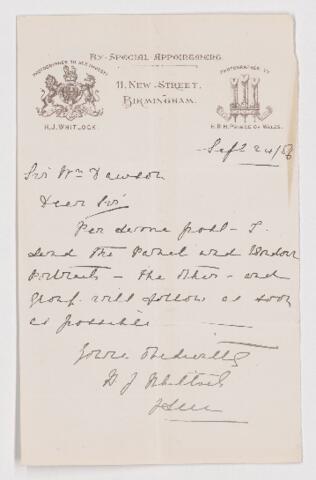 By Special Appointment
Photographer to Her Majesty
Photographer to
11, New Street,
Birmingham.
H.J. Whitlock.
H.R.H. Prince of Wales.
Sept 24/86
Sir Wm Dawson
Dear Sir
Per same post - I
send the Panel and Boudoir
Portraits - the others - and
Group will follow as soon
as possible
Yours Obediently
H J Whitlock